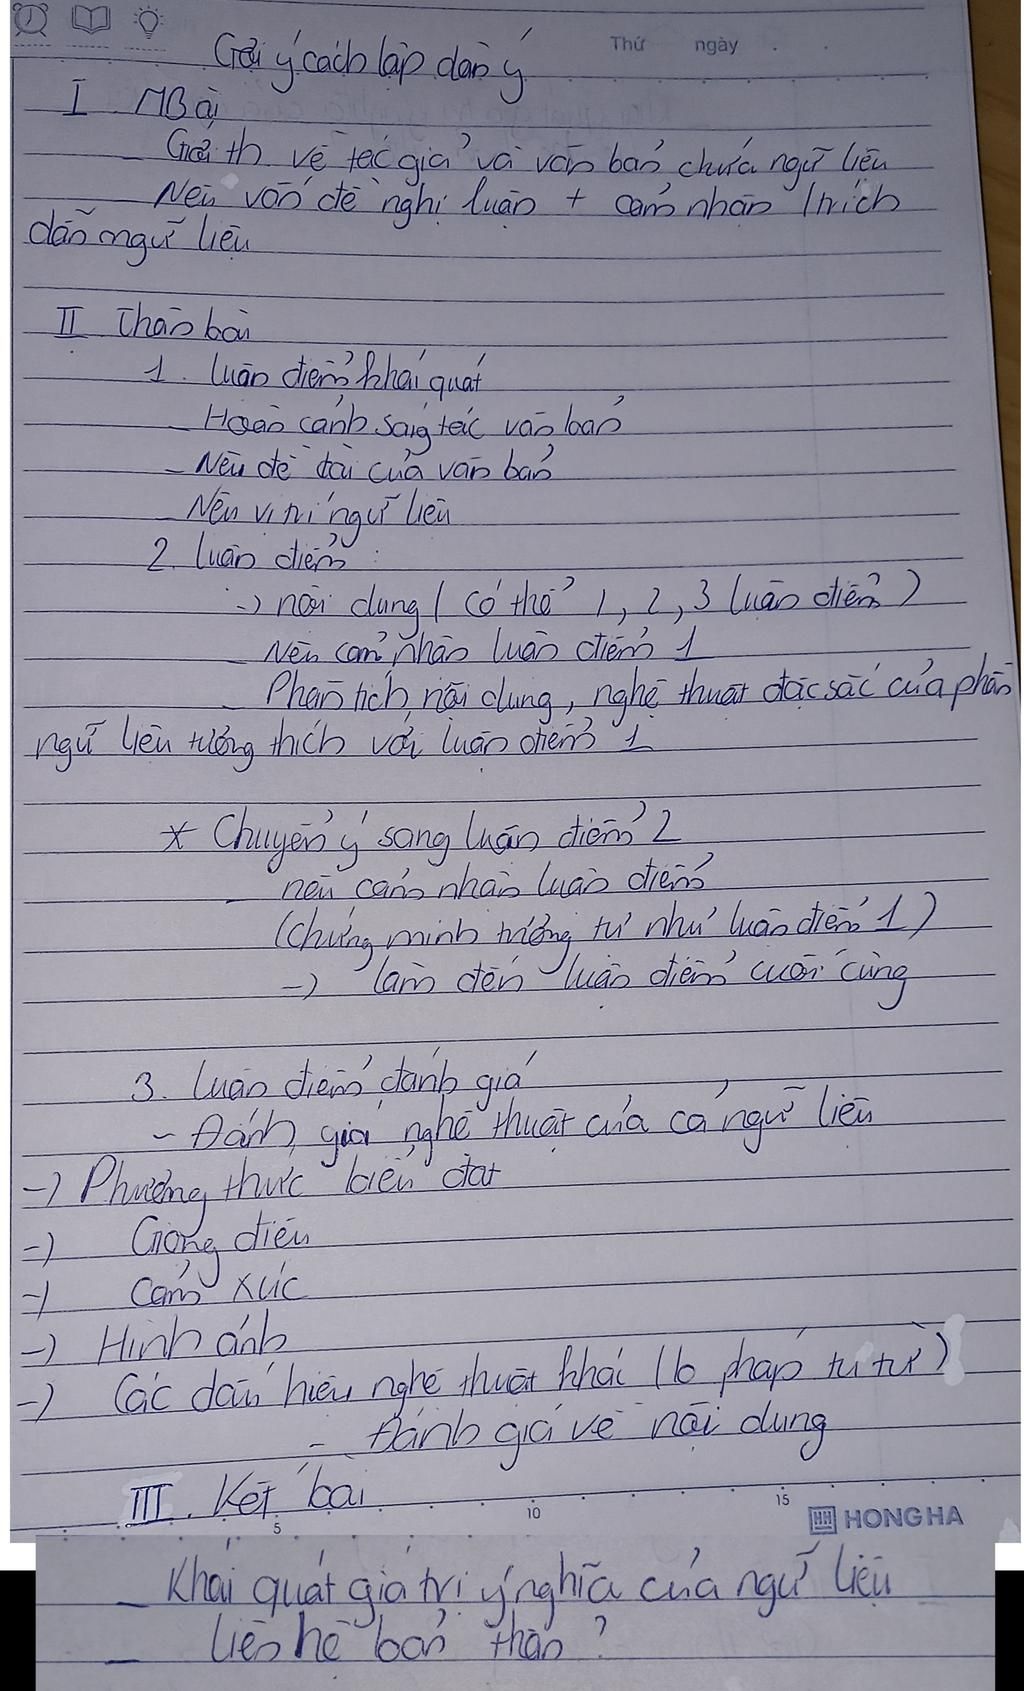 Thứ ngày . .
Gợi ý cách lập dàn ý
I MBài
_ Giới th về tác giả và văn bản chứa ngữ liệu
_ Nêu vấn đề nghị luận + cảm nhận / trích
dẫn ngữ liệu
II Thân bài
1. Luận điểm khái quát
_ Hoàn cảnh sáng tác văn bản
_ Nêu đề tài của văn bản
_ Nêu vị trí ngữ liệu
2. Luận điểm :
-> nội dung ( có thể 1, 2, 3 luận điểm )
_ Nêu cảm nhận luận điểm 1
_ Phân tích nội dung, nghệ thuật đặc sắc của phần
ngữ liệu tương thích với luận điểm 1
* Chuyển ý sang luận điểm 2
_ nêu cảm nhận luận điểm
(chứng minh tương tự như luận điểm 1)
-> làm đến luận điểm cuối cùng
3. Luận điểm đánh giá
- Đánh giá nghệ thuật của cả ngữ liệu
-> Phương thức biểu đạt
-> Giọng điệu
-> Cảm xúc
-> Hình ảnh
-> Các dấu hiệu nghệ thuật khái (b pháp tu từ)
- Đánh giá về nội dung
III. Kết bài
5 10 15 HH HONG HA
_ Khái quát giá trị ý nghĩa của ngữ liệu
_ liên hệ bản thân ?